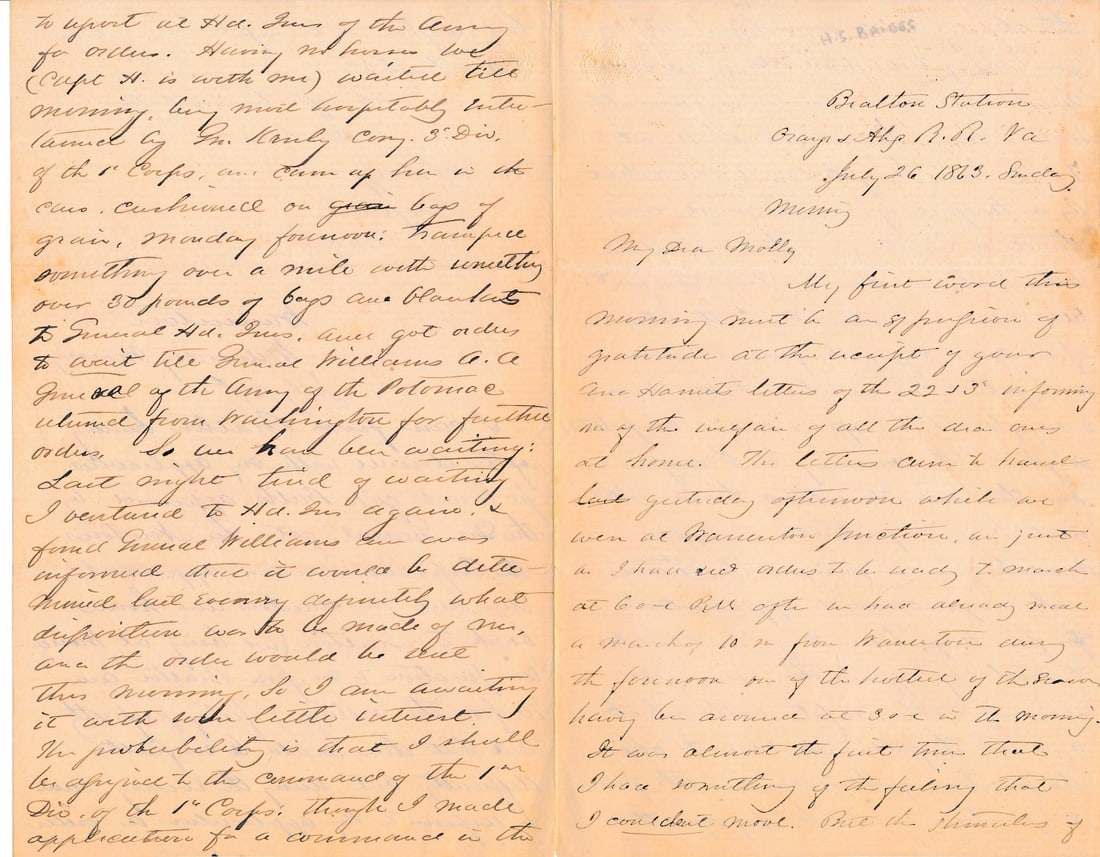 to report at Hd. Qrs of the Army
for orders. Having no horses we
(Capt H. is with me) waited till
morning, being most hospitably enter-
tained by Gn. Kenly Comg. 3d Div.
of the 1st Corps, and came up here in the
cars, cushioned on bags of
grain, Monday forenoon: tramped
something over a mile with something
over 30 pounds of bags and blankets
to General Hd. Qrs. and got orders
to wait till General Williams A. A
General of the Army of the Potomac
returned from Washington for further
orders. So we have been awaiting:
Last night tired of waiting
I ventured to Hd. Qrs again. &
found General Williams and was
informed that it would be deter-
mined last Evening definitely what
disposition was to be made of me,
and the order would be sent
this morning. So I am awaiting
it with some little interest.
The probability is that I shall
be assigned to the command of the 1st
Div. of the 1st Corps: though I made
application for a command in the
Bealton Station
Orange & Alxa R. R. Va
July 26 1863. Sunday
Morning
My Dear Molly
My first word this
morning must be an expression of
gratitude at the receipt of your
and Harriets letters of the 22 & 3d informing
me of the welfare of all the dear ones
at home. The letters came to hand
last yesterday afternoon while we
were at Warrenton Junction, and just
as I had recd orders to be ready to march
at 6 o-c P.M. after we had already made
a march of 10 m from Warrenton during
the forenoon one of the hottest of the season
having been aroused at 3 o-c in the morning.
It was almost the first time that
I had something of the feeling that
I couldent move. But the stimulus of